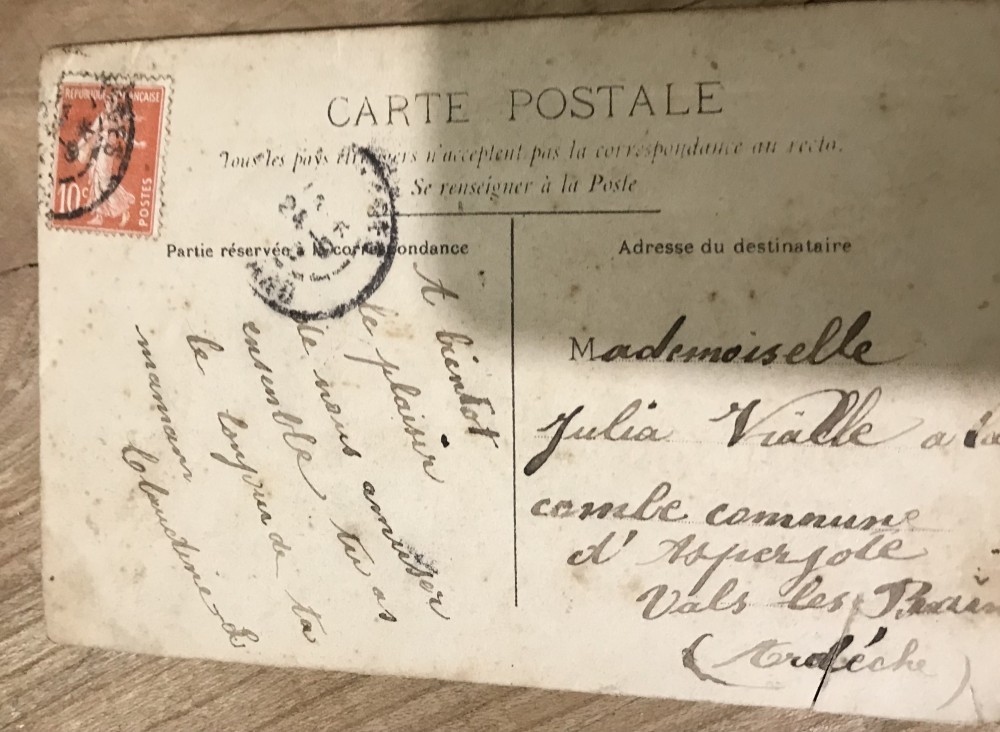 RÉPUBLIQUE FRANÇAISE
10c
POSTES
CARTE POSTALE
Tous les pays étrangers n'acceptent pas la correspondance au recto.
Se renseigner à la Poste
Partie réservée à la correspondance
A bientot
le plaisir
de nous amuser
ensemble tu as
le de ta
maman
Adresse du destinataire
Mademoiselle
Julia Vialle a la
combe commune
d'Aspergole
Vals les
(Ardéche)